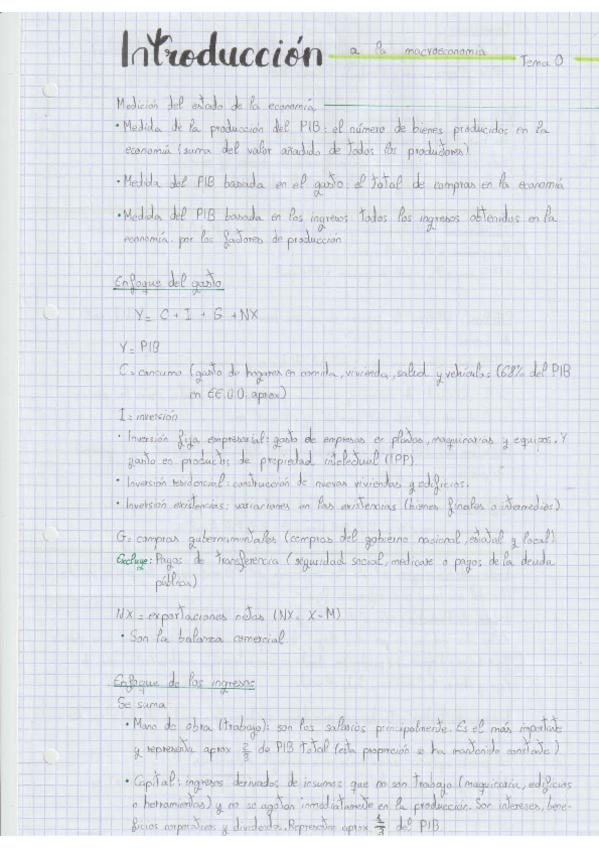 Introducción a la macroeconomía Tema 0
Medición del estado de la economía
• Medida de la producción del PIB: el número de bienes producidos en la
economía (suma del valor añadido de todos los productores)
• Medida del PIB basada en el gasto: el total de compras en la economía
• Medida del PIB basada en los ingresos todos los ingresos obtenidos en la
economía por los factores de producción
Enfoque del gasto
Y = C + I + G + NX
Y = PIB
C = consumo (gasto de hogares en comida, vivienda, salud y vehículos (68% del PIB
en EE.UU. aprox)
I = inversión
• Inversión fija empresarial: gasto de empresas en plantas, maquinarias y equipos. Y
gasto en productos de propiedad intelectual (IPP).
• Inversión residencial: construcción de nuevas viviendas y edificios.
• Inversión existencias: variaciones en las existencias (bienes finales o intermedios).
G = compras gubernamentales (compras del gobierno nacional, estatal y local)
Excluye: Pagos de transferencia (seguridad social, medicare o pagos de la deuda
pública)
NX = exportaciones netas (NX = X - M)
• Son la balanza comercial.
Enfoque de los ingresos
Se suma
• Mano de obra (trabajo): son los salarios principalmente. Es el más importante
y representa aprox 2/3 de PIB total (esta proporción se ha mantenido constante)
• Capital: ingresos derivados de insumos que no son trabajo (maquinaria, edificios
o herramientas) y no se agotan inmediatamente en la producción. Son intereses, bene-
ficios corporativos y dividendos. Representa aprox 1/3 del PIB